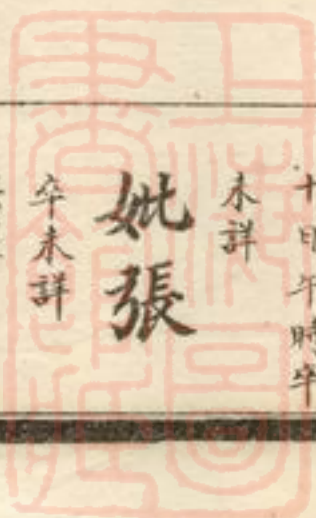 十日午時卒
未詳
妣張
卒未詳